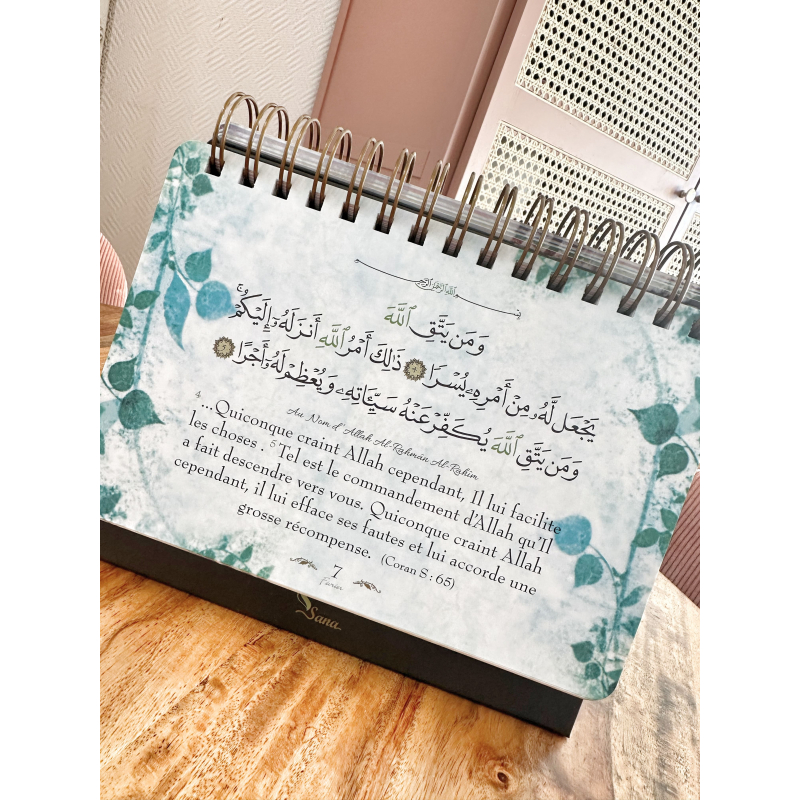 وَمَن يَتَّقِ ٱللَّهَ
يَجْعَل لَّهُۥ مِنْ أَمْرِهِۦ يُسْرًا ٤ ذَٰلِكَ أَمْرُ ٱللَّهِ أَنزَلَهُۥٓ إِلَيْكُمْ ۚ
وَمَن يَتَّقِ ٱللَّهَ يُكَفِّرْ عَنْهُ سَيِّـَٔاتِهِۦ وَيُعْظِمْ لَهُۥٓ أَجْرًا ٥
Au Nom d'Allah Al-Rahmân Al-Rahim
4 ...Quiconque craint Allah cependant, Il lui facilite
les choses . 5 Tel est le commandement d'Allah qu'Il
a fait descendre vers vous. Quiconque craint Allah
cependant, il lui efface ses fautes et lui accorde une
grosse récompense. (Coran S : 65)
7
Février
Sana